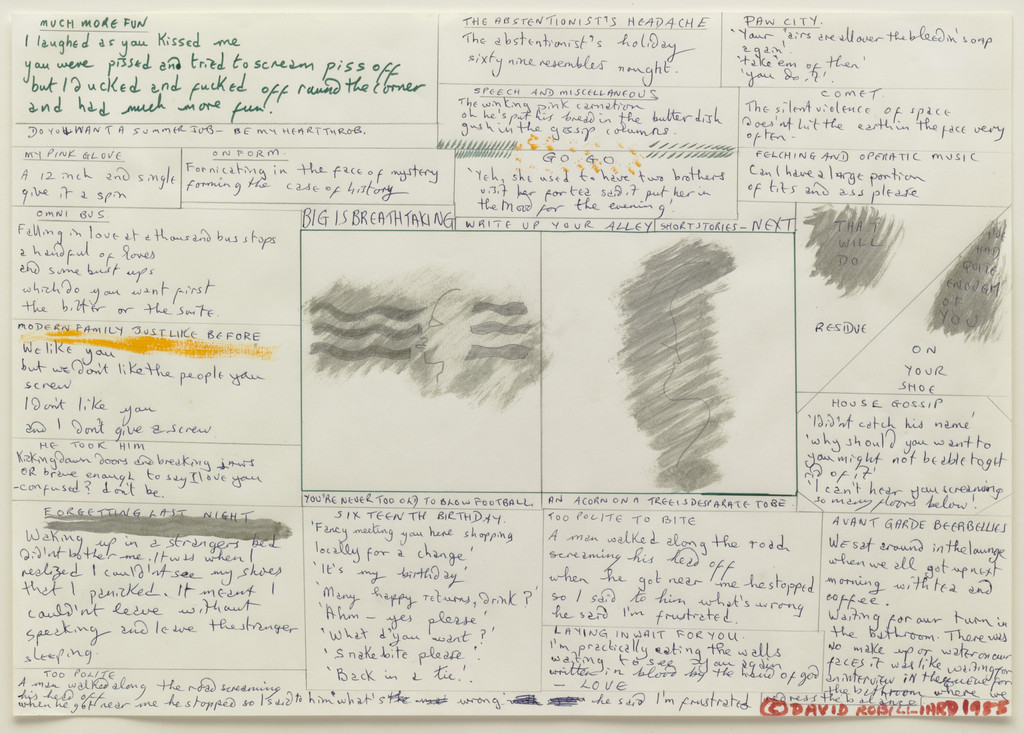 MUCH MORE FUN
I laughed as you kissed me
you were pissed and tried to scream piss off
but I ducked and fucked off round the corner
and had much more fun!
DO YOU WANT A SUMMER JOB - BE MY HEART THROB.
THE ABSTENTIONIST'S HEADACHE
The abstentionist's holiday
sixty nine resembles nought.
PAW CITY.
'Your 'airs are all over the bleedin' soap
again'.
'take 'em off then'
'you do it'.
SPEECH AND MISCELLANEOUS
The winking pink carnation
oh he's put his bread in the butter dish
gush in the gossip columns.
COMET.
The silent violence of space
Does'nt hit the earth in the face very
often.
MY PINK GLOVE
A 12 inch and single
give it a spin
ON FORM.
Fornicating in the face of mystery
forming the case of history
GO GO
'Yeh, she used to have two brothers
visit her for tea said it put her in
the mood for the evening'.
FELCHING AND OPERATIC MUSIC
Can I have a large portion
of tits and ass please
OMNI BUS
Falling in love at a thousand bus stops
a handful of loves
and some bust ups
which do you want first
the bitter or the suite.
BIG IS BREATHTAKING
WRITE UP YOUR ALLEY
SHORT STORIES - NEXT
THAT
WILL
DO
I'VE
HAD
QUITE
ENOUGH
OF
YOU
RESIDUE
ON
YOUR
SHOE
MODERN FAMILY JUST LIKE BEFORE
We like you
but we don't like the people you
screw
I don't like you
and I don't give a screw
HE TOOK HIM
Kicking down doors and breaking jaws
OR brave enough to say I love you
- confused? don't be.
HOUSE GOSSIP
'I did'nt catch his name'
'why should you want to
you might not be able to get
rid of it?'
'I can't hear you screaming
so many floors below'.
YOU'RE NEVER TOO OLD TO BLOW FOOTBALL.
AN ACORN ON A TREE IS DESPARATE TO BE.
FORGETTING LAST NIGHT
Waking up in a strangers bed
did'nt bother me. It was when I
realized I could'nt see my shoes
that I panicked. It meant I
could'nt leave without
speaking and leave the stranger
sleeping.
SIX TEENTH BIRTHDAY.
'Fancy meeting you here shopping
locally for a change'
'It's my birthday'
'Many happy returns, drink?'
'Ahm - yes please'
'What d'you want?'
'Snakebite please'.
'Back in a tic'.
TOO POLITE TO BITE
A man walked along the road
screaming his head off
when he got near me he stopped
so I said to him what's wrong
he said I'm frustrated.
LAYING IN WAIT FOR YOU.
I'm practically eating the walls
waiting to see you again
written in blood by the hand of god
LOVE
AVANT GARDE BEERBELLIES
We sat around in the lounge
when we all got up next
morning with tea and
coffee.
Waiting for our turn in
the bathroom. There was
no make up or water on our
faces it was like waiting for
an interview in the queue for
the bathroom where we
address the balance
TOO POLITE
A man walked along the road screaming
his head off
when he got near me he stopped so I said to him what's wrong he said I'm frustrated
© DAVID ROBILLIARD 1985